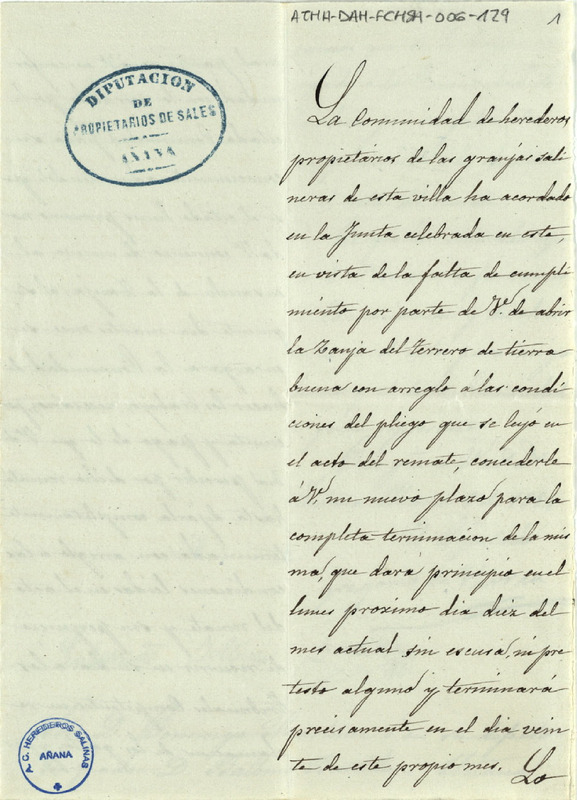 ATHH-DAH-FCHSA-006-129
1
DIPUTACION
DE
PROPIETARIOS DE SALES
AÑANA
La Comunidad de herederos
propietarios de las granjas sali
neras de esta villa ha acordado
en la Junta celebrada en este,
en vista de la falta de cumpli
miento por parte de V. de abrir
la Zanja del Terrero de tierra
buena con arreglo á las condi
ciones del pliego que se leyó en
el acto del remate, concederle
á V. un nuevo plazo para la
completa terminacion de la mis
ma, que dará principio en el
lunes proximo dia diez del
mes actual sin escusa, ni pre
testo alguno y terminará
precisamente en el dia vein
te de este propio mes.
Lo
A. C. HEREDEROS SALINAS
AÑANA